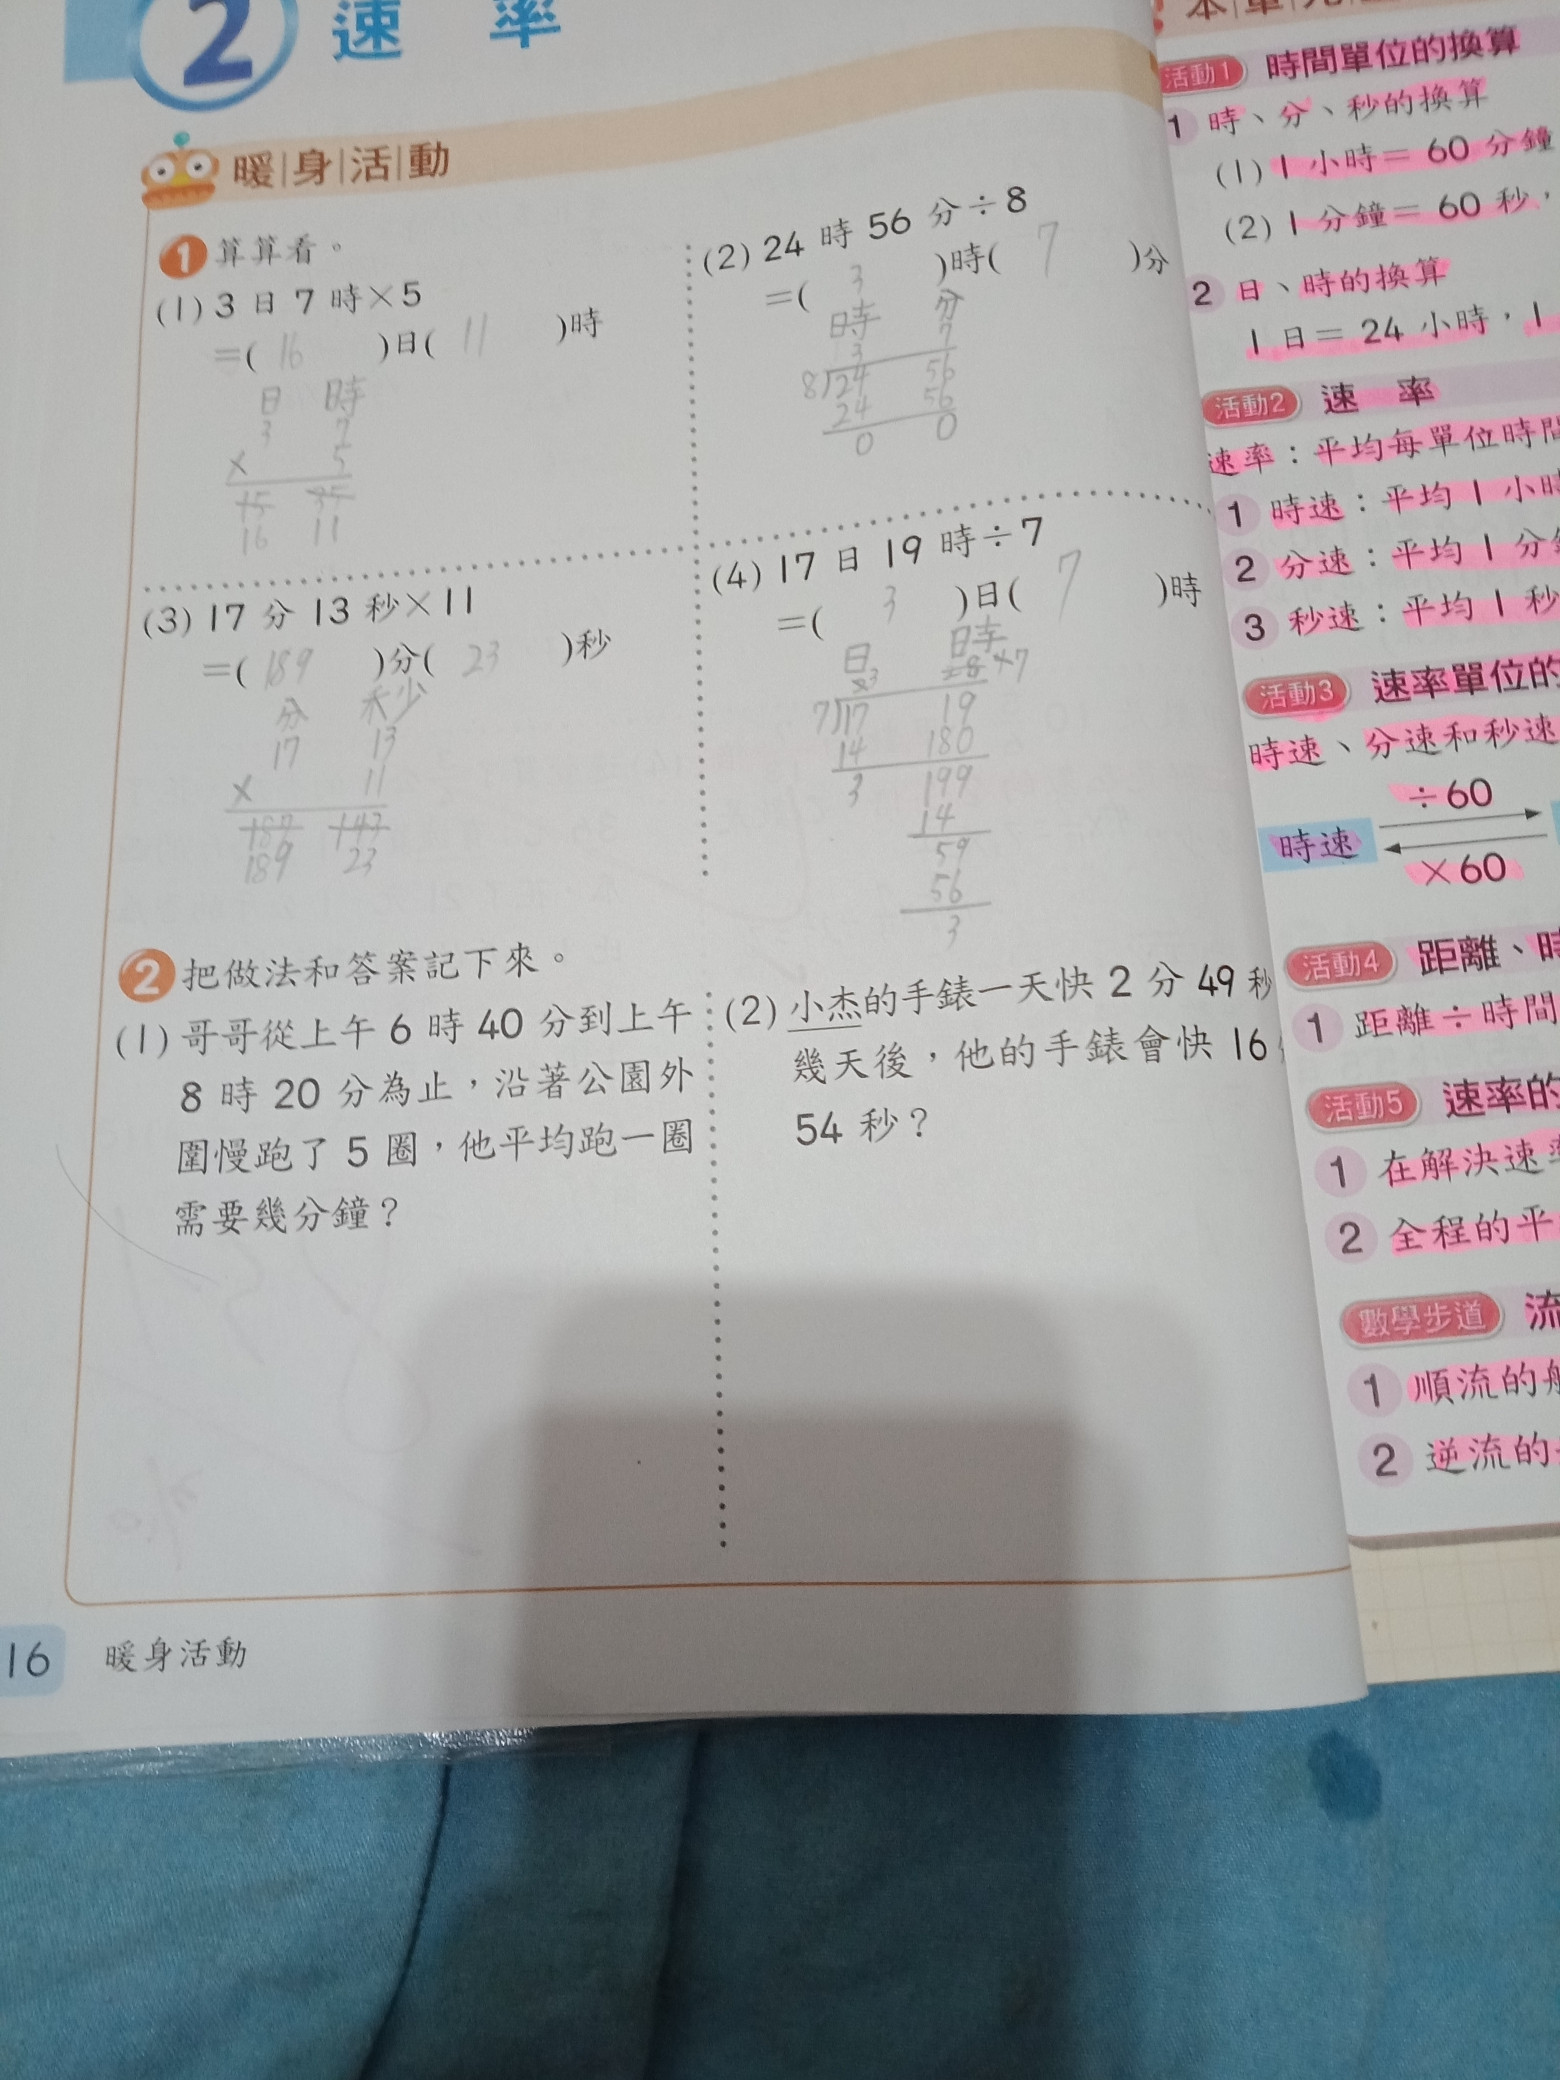 2 速 率
暖身活動
1 算算看。
(1) 3 日 7 時×5
=( 16 )日( 11 )時
日 時
3 7
× 5
15 35
16 11
(2) 24 時 56 分÷8
=( 3 )時( 7 )分
時 分
3 7
8 24 56
24 56
0 0
(3) 17 分 13 秒×11
=( 189 )分( 23 )秒
分 秒
17 13
× 11
187 143
189 23
(4) 17 日 19 時÷7
=( 3 )日( 7 )時
日 時
3 7
7 17 19
14 180
3 199
14
59
56
3
2 把做法和答案記下來。
(1) 哥哥從上午 6 時 40 分到上午
8 時 20 分為止,沿著公園外
圍慢跑了 5 圈,他平均跑一圈
需要幾分鐘?
(2) 小杰的手錶一天快 2 分 49 秒
幾天後,他的手錶會快 16
54 秒?
16 暖身活動
活動1 時間單位的換算
1 時、分、秒的換算
(1) 1 小時= 60 分鐘
(2) 1 分鐘= 60 秒,
2 日、時的換算
1 日= 24 小時,1
活動2 速 率
速率:平均每單位時間
1 時速:平均 1 小時
2 分速:平均 1 分
3 秒速:平均 1 秒
活動3 速率單位的
時速、分速和秒速
÷60
時速
×60
活動4 距離、時
1 距離÷時間
活動5 速率的
1 在解決速率
2 全程的平
數學步道 流
1 順流的
2 逆流的